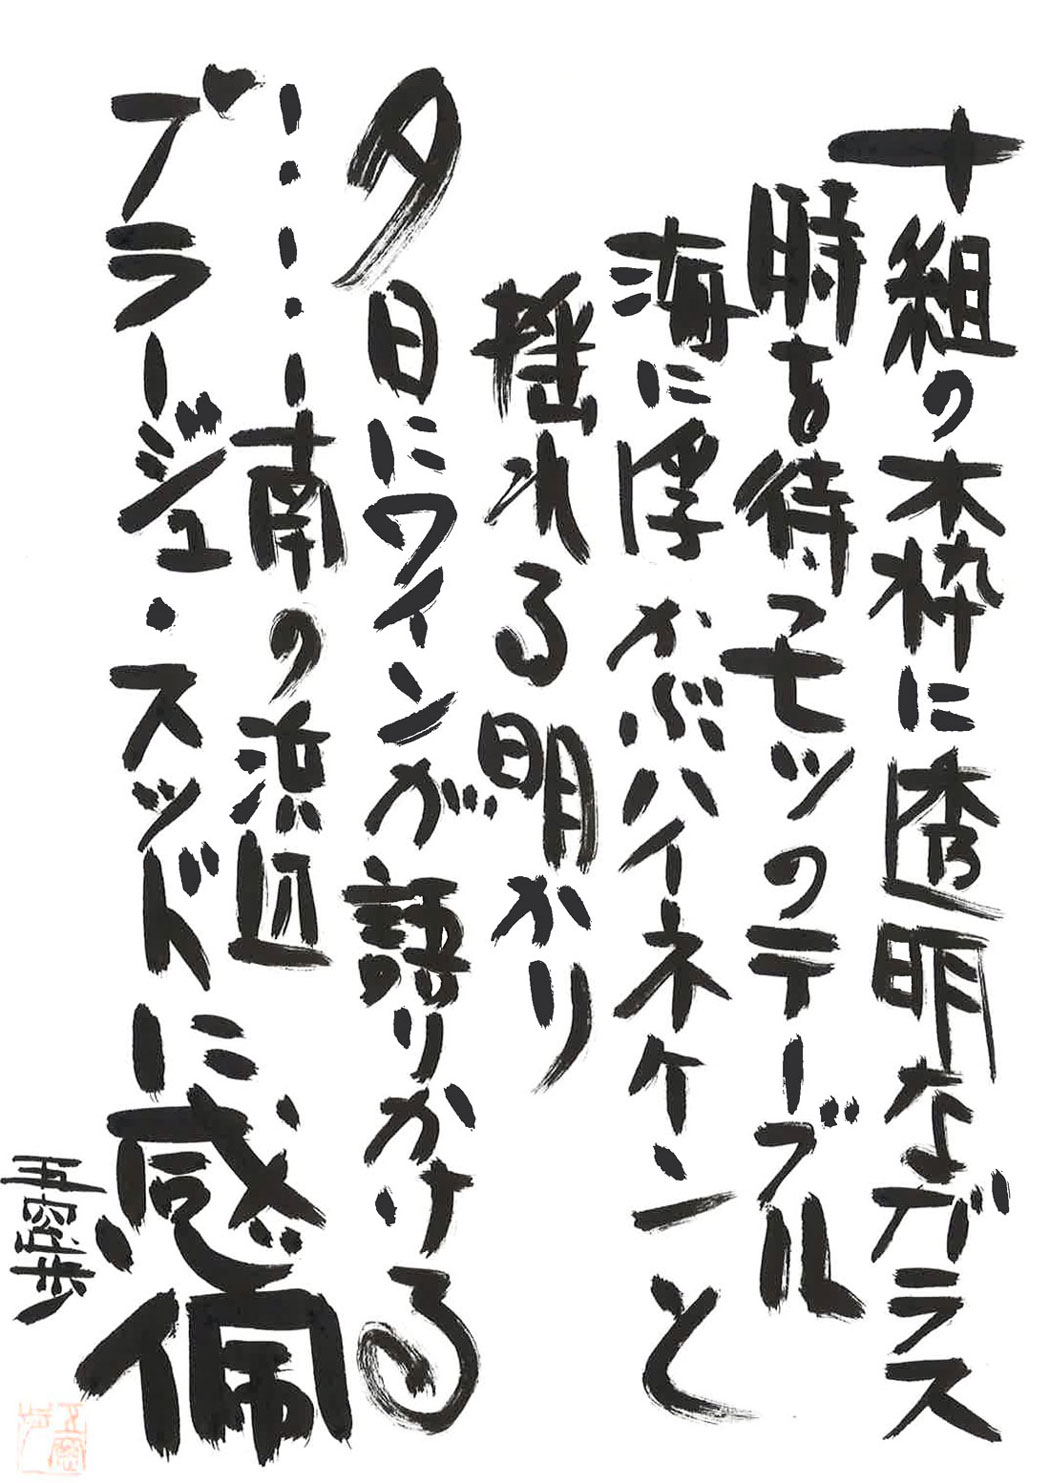 十組の木枠に透明なガラス
時を待つモツのテーブル
海に浮かぶハイネケンと
揺れる明かり
夕日にワインが語りかける
……南の浜辺
プラージュ・スッドに感佩